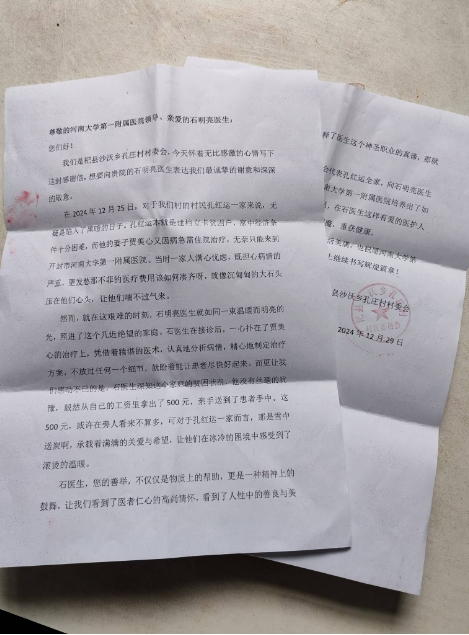 尊敬的河南大学第一附属医院领导、亲爱的石明亮医生：
您们好！
我们是杞县沙沃乡孔庄村村委会，今天怀着无比感激的心情写下
这封感谢信，想要向贵院的石明亮医生表达我们最诚挚的谢意和深深
的敬意。
在 2024 年 12 月 25 日，对于我们村的村民孔红运一家来说，无
疑是陷入了黑暗的日子。孔红运本就是建档立卡贫困户，家中经济条
件十分困难，而他的妻子贾美心又因病急需住院治疗，无奈只能来到
开封市河南大学第一附属医院。当时一家人满心忧虑，既担心病情的
严重，更发愁那不菲的医疗费用该如何凑齐呀，就像沉甸甸的大石头
压在他们心头，让他们喘不过气来。
然而，就在这艰难的时刻，石明亮医生就如同一束温暖而明亮的
光，照进了这个几近绝望的家庭。石医生在接诊后，一心扑在了贾美
心的治疗上，凭借着精湛的医术，认真地分析病情，精心地制定治疗
方案，不放过任何一个细节，就盼着能让患者尽快好起来。而更让我
们感动不已的是，石医生深知这个家庭的贫困状况，他没有丝毫的犹
豫，毅然从自己的工资里拿出了 500 元，亲手送到了患者手中。这
500 元，或许在旁人看来不算多，可对于孔红运一家而言，那是雪中
送炭啊，承载着满满的关爱与希望，让他们在冰冷的困境中感受到了
滚烫的温暖。
石医生，您的善举，不仅仅是物质上的帮助，更是一种精神上的
鼓舞，让我们看到了医者仁心的高尚情怀，看到了人性中的善良与美
释了医生这个神圣职业的真谛，那就
会代表孔红运全家，向石明亮医生
南大学第一附属医院培养出了如
，在石医生这样有爱的医护人
魔，重获健康。
上继续书写辉煌篇章！
县沙沃乡孔庄村村委会
2024 年 12 月 29 日